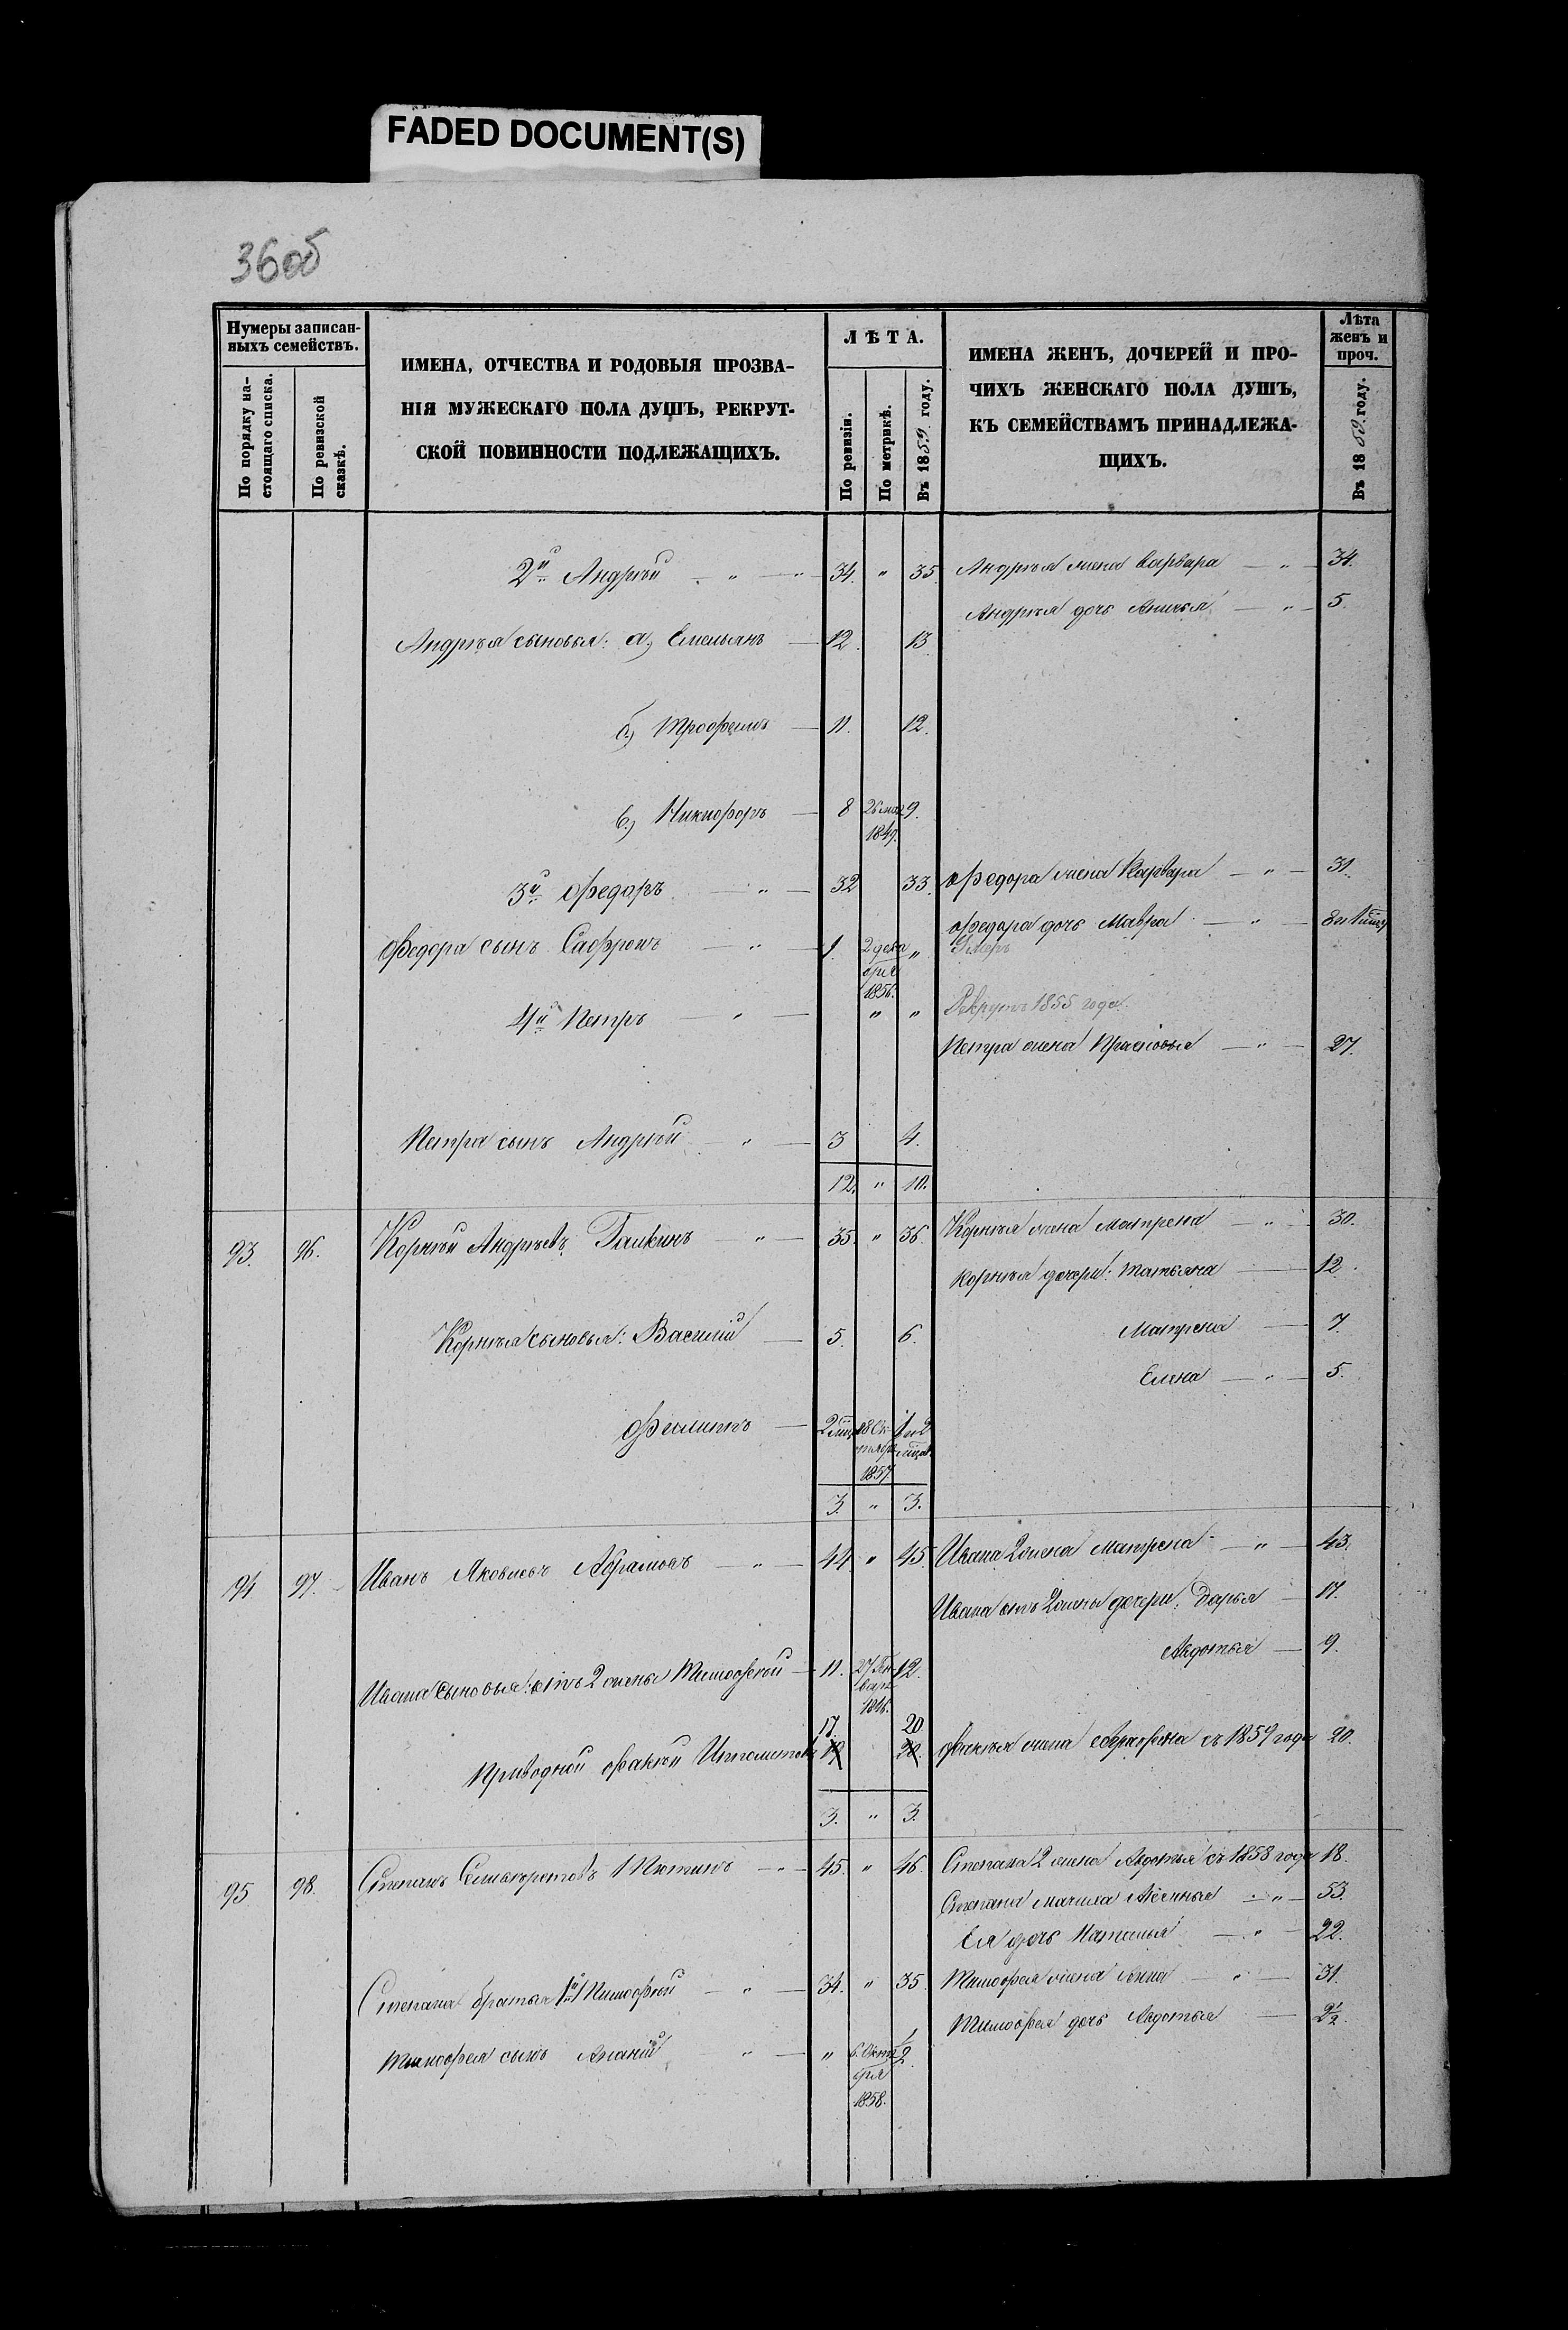 FADED DOCUMENT(S)
36об
Нумеры записан-
ныхъ семействъ.
По порядку на-
стоящаго списка.
По ревизской
сказкѣ.
ИМЕНА, ОТЧЕСТВА И РОДОВЫЯ ПРОЗВА-
НІЯ МУЖЕСКАГО ПОЛА ДУШЪ, РЕКРУТ-
СКОЙ ПОВИННОСТИ ПОДЛЕЖАЩИХЪ.
ЛѢТА.
По ревизіи.
По метрикѣ.
Въ 1859 году.
ИМЕНА ЖЕНЪ, ДОЧЕРЕЙ И ПРО-
ЧИХЪ ЖЕНСКАГО ПОЛА ДУШЪ,
КЪ СЕМЕЙСТВАМЪ ПРИНАДЛЕЖА-
ЩИХЪ.
Лѣта
женъ и
проч.
Въ 1859 году.
2й Андрѣй — " — 34. " 35. Андрѣя жена Варвара — " — 34.
Андрѣя дочь Анисья — " — 5.
Андрѣя сыновья: а) Емельянъ — 12. 13.
б) Трофимъ — 11. 12.
в) Никифоръ — 8 26 мая 1849. 9.
3й Федоръ — " — 32 33. Федора жена Варвара — " — 31.
Федора дочь Мавра — " —
Федора сынъ Сафронъ — " — 1. 2 дека
бря
1856. " Умеръ
4й Петръ — " — " " Рекрутъ 1855 года.
Петра жена Прасковья — " — 27.
Петра сынъ Андрѣй — " — 3 4.
12. " 10.
93. 96. Корнѣй Андрѣевъ Галкинъ — " — 35. " 36. Корнѣя жена Матрена — " — 30.
Корнѣя дочери: Татьяна — 12.
Корнѣя сыновья: Василій — 5. 6. Матрена — 7.
Елена — " — 5.
Филиппъ — 2 мѣс 28 Ок
тября
1857. 1 и 2
мѣсяц.
3. " 3.
94 97. Иванъ Яковлевъ Абрамовъ — " — 44. " 45. Ивана 2 жена Матрена — " — 43.
Ивана отъ 2 жены дочери: Дарья — 17.
Авдотья — 9.
Ивана сыновья: отъ 2 жены Тимофѣй — 11. 27 Ян
варя
1846. 12.
17. 20.
Приводной Фокѣй Ипполитовъ Фокѣя жена Аграфена съ 1859 года 20.
3. " 3.
95 98. Степанъ 1 Тютинъ — " — 45. " 46. Степана 2 жена Авдотья съ 1858 года 18.
Степана мачиха Аксинья — " — 53.
Ея дочь Наталья — " — 22.
Степана братья 1й Тимофѣй — " — 34. " 35. Тимофея жена Анна — " — 31.
Тимофея дочь Авдотья — 2½.
Тимофея сынъ Ананій — " — " 6. Октя
бря
1858. ½